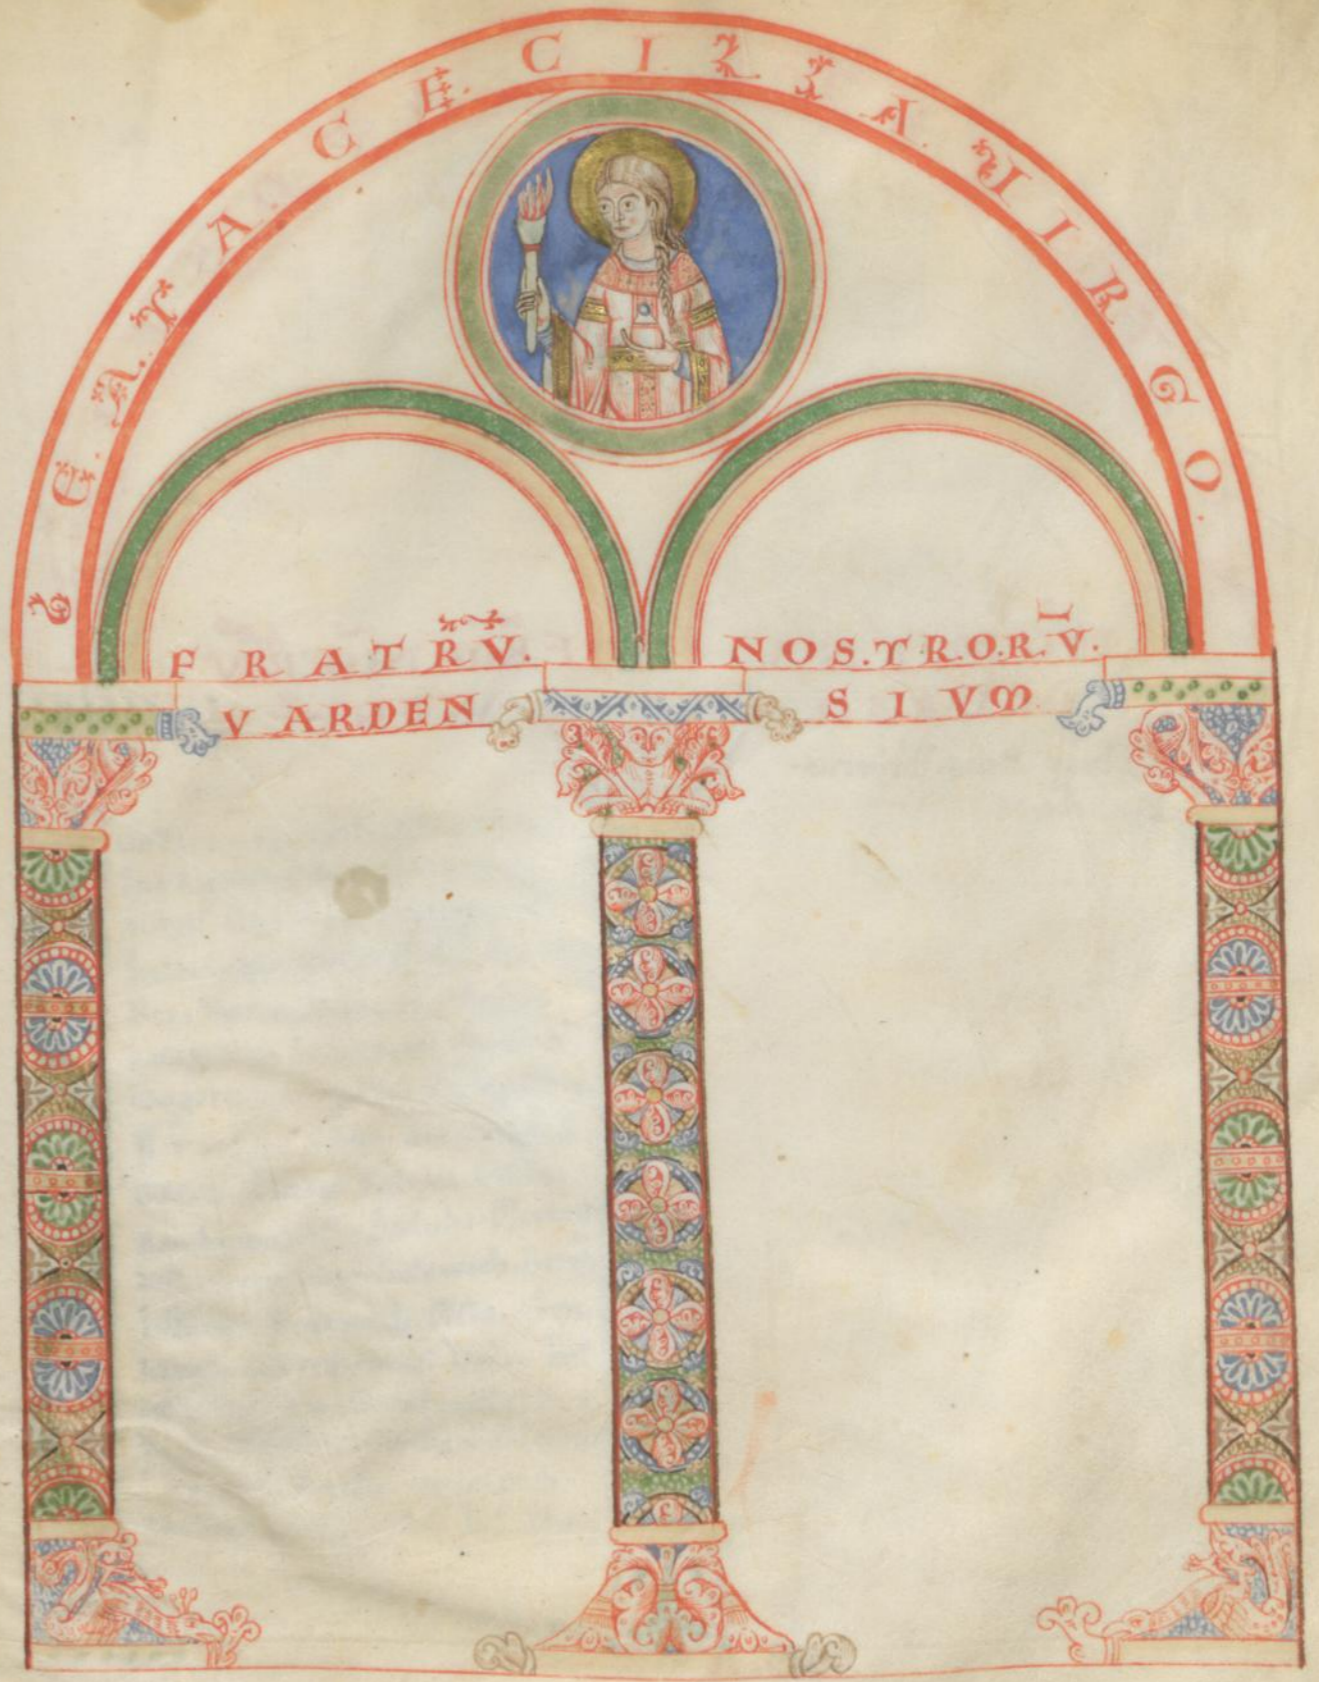 BEATA CECILIA VIRGO.
FRATRV̄. NOS.TRO.R.V̄.
VARDENSIVM